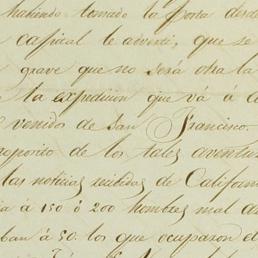 habiendo tomado la posta desde
capital le advertí, que se
grave que no será otra la
ta expedicion que vá á
venidos de San Francisco.
reposito de los tales aventu
las noticias recibidas de Californ
ia á 150 ó 200 hombres mal a
ban á 50. los que ocuparon el